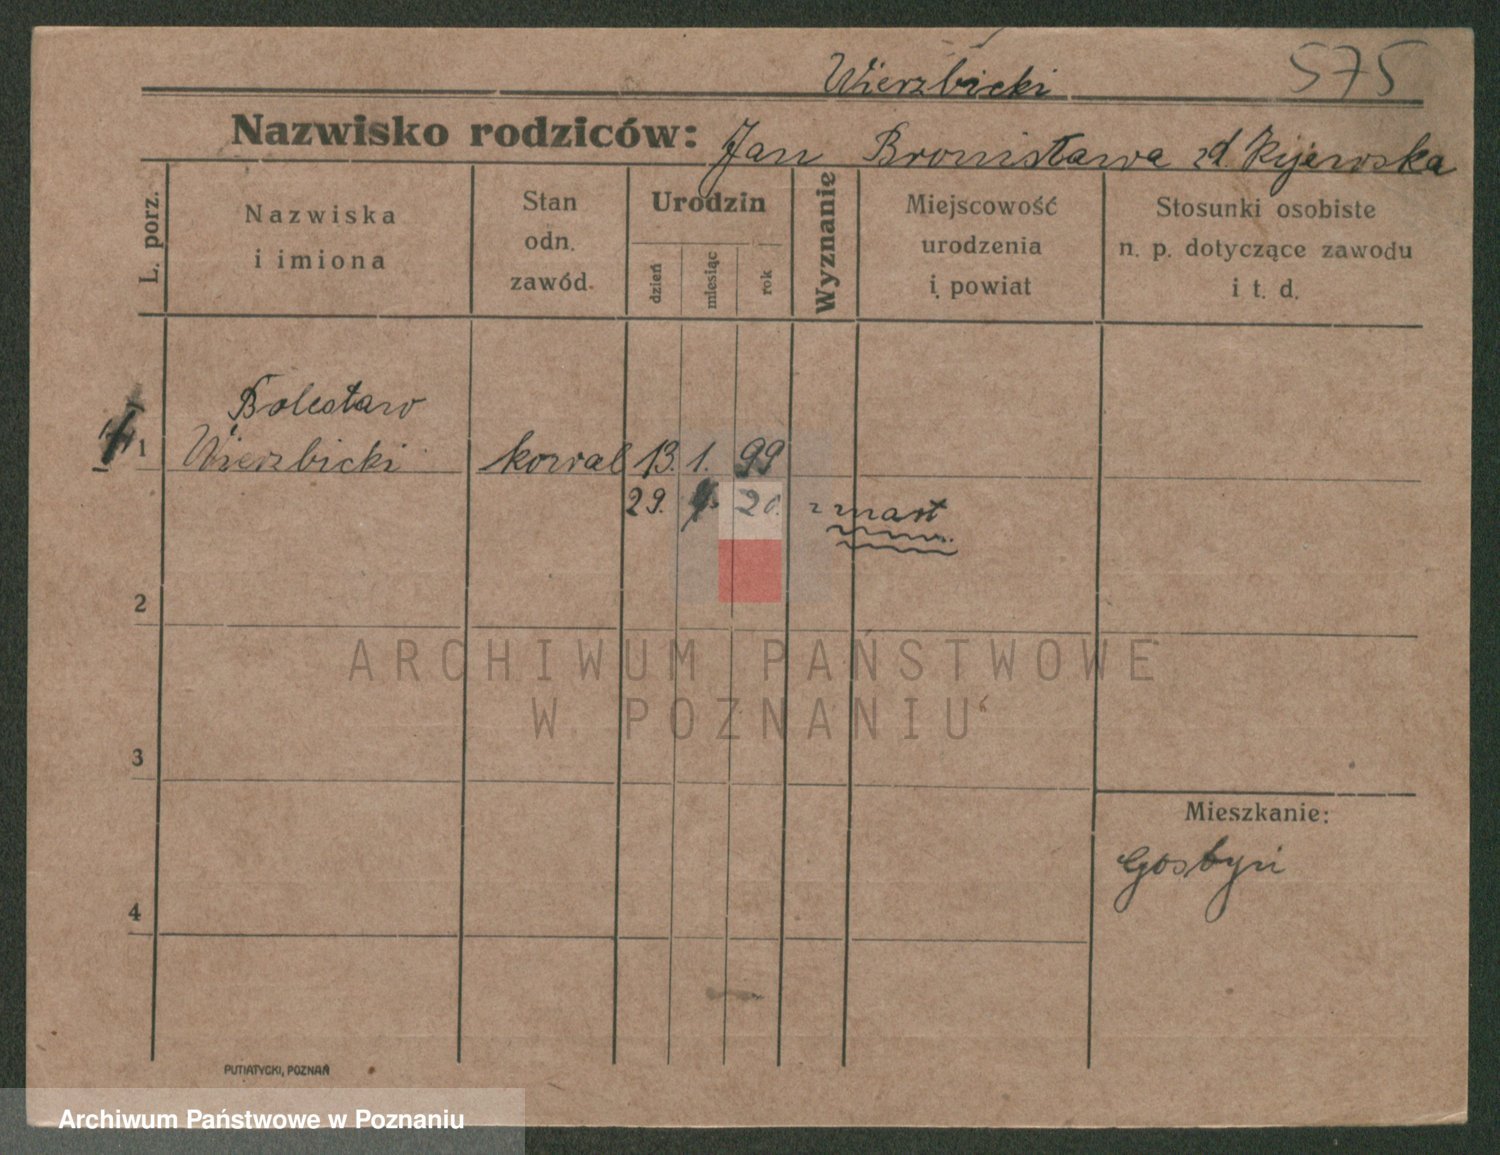 Wierzbicki 575
Nazwisko rodziców: Jan Bronisława zd. Kijewska
L. porz.
Nazwiska
i imiona
Stan
odn.
zawód
Urodzin
dzień
miesiąc
rok
Wyznanie
Miejscowość
urodzenia
i powiat
Stosunki osobiste
n. p. dotyczące zawodu
i t. d.
Bolesław
1 Wierzbicki kowal 13. 1. 99
29. 20. zmarł
2
ARCHIWUM PAŃSTWOWE
W POZNANIU
3
Mieszkanie:
Gostyń
4
PUTIATYCKI, POZNAŃ
Archiwum Państwowe w Poznaniu